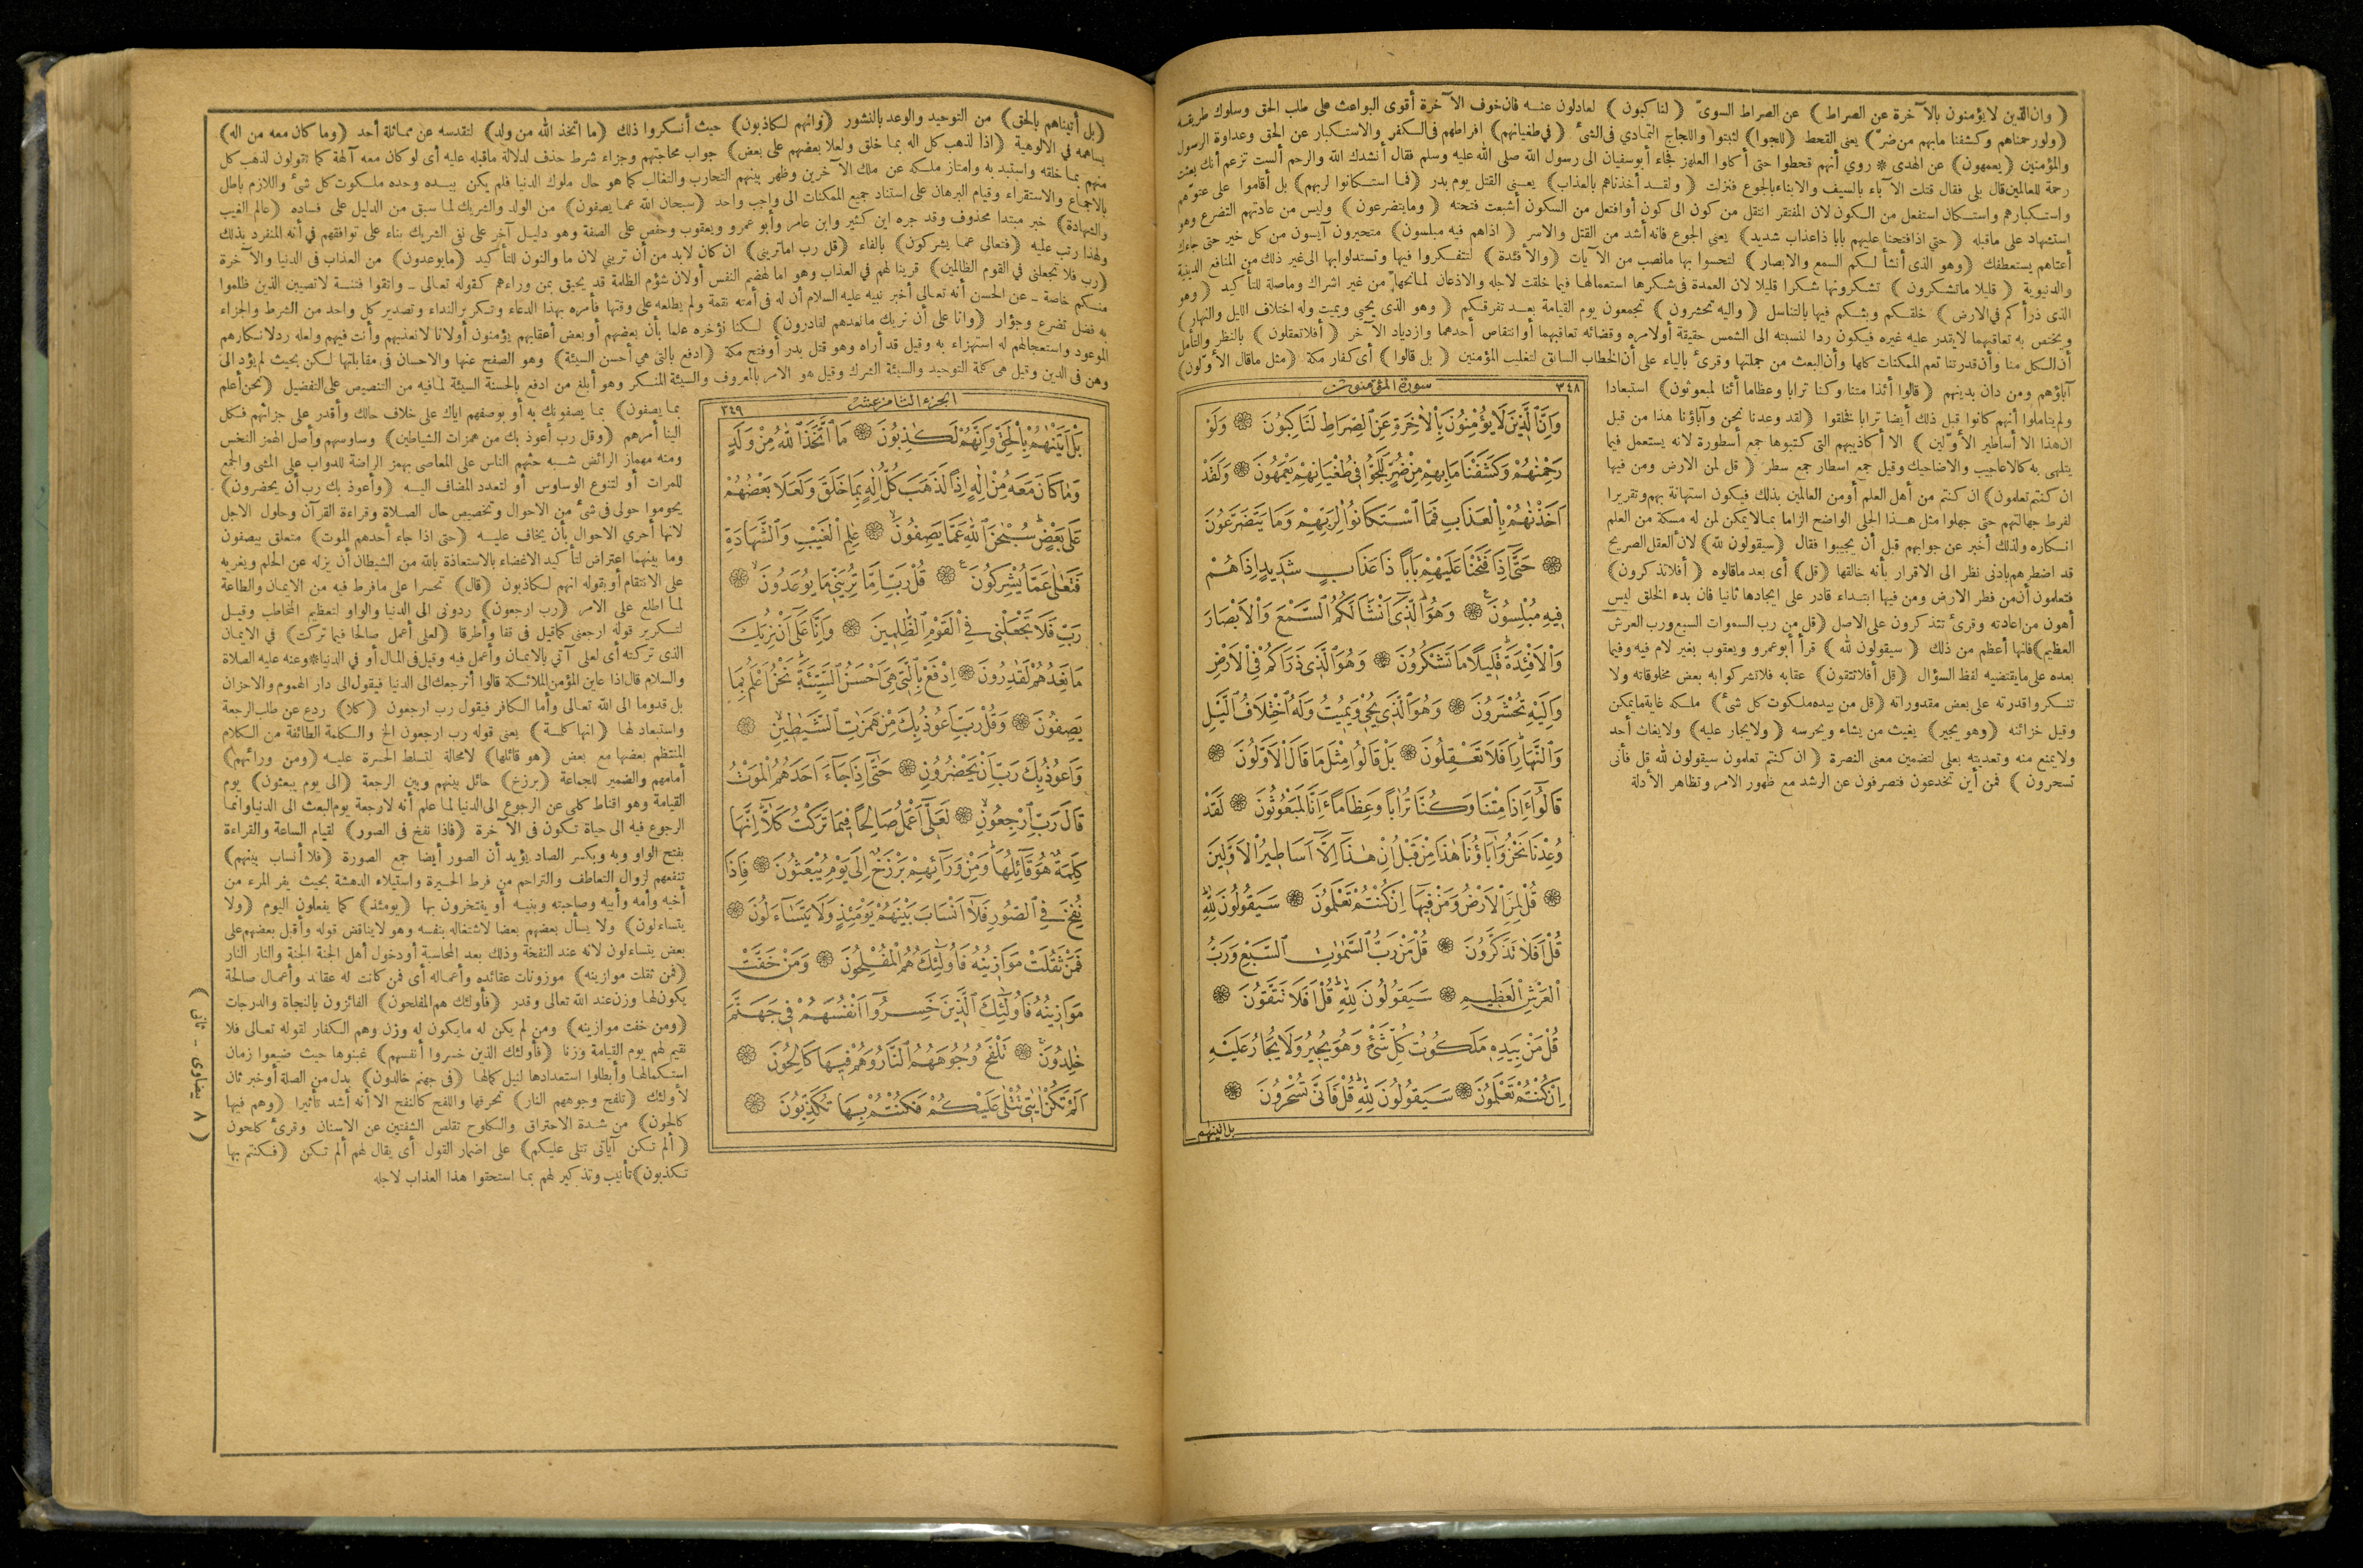 ( وان الذين لايؤمنون بالآخرة عن الصراط ) عن الصراط السوىّ ( لناكبون ) لعادلون عنه فان خوف الآخرة أقوى البواعث على طلب الحق وسلوك طريقه
( ولورحمناهم وكشفنا مابهم من ضرّ ) يعنى القحط ( للجوا ) لثبتوا واللجاج التمادي فى الشئ ( في طغيانهم ) افراطهم فى الكفر والاستكبار عن الحق وعداوة الرسول
والمؤمنين ( يعمهون ) عن الهدى * روي أنهم قحطوا حتى أكلوا العلهز فجاء أبوسفيان الى رسول الله صلى الله عليه وسلم فقال أنشدك الله والرحم ألست تزعم أنك بعثت
رحمة للعالمين قال بلى فقال قتلت الآباء بالسيف والابناء بالجوع فنزلت ( ولقد أخذناهم بالعذاب ) يعنى القتل يوم بدر ( فما استكانوا لربهم ) بل أقاموا على عتوّهم
واستكبارهم واستكان استفعل من الكون لان المفتقر انتقل من كون الى كون أوافتعل من السكون أشبعت فتحته ( ومايتضرعون ) وليس من عادتهم التضرع وهو
استشهاد على ماقبله ( حتى اذا فتحنا عليهم بابا ذاعذاب شديد ) يعني الجوع فانه أشد من القتل والاسر ( اذاهم فيه مبلسون ) متحيرون آيسون من كل خير حتى جاءك
أعتاهم يستعطفك ( وهو الذى أنشأ لكم السمع والابصار ) لتحسوا بها مانصب من الآيات ( والأفئدة ) لتتفكروا فيها وتستدلوابها الى غير ذلك من المنافع الدينية
والدنيوية ( قليلا ماتشكرون ) تشكرونها شكرا قليلا لان العمدة فى شكرها استعمالها فيما خلقت لاجله والاذعان لمانحها من غير اشراك وماصلة للتأكيد ( وهو
الذى ذرأكم في الارض ) خلقكم وبثكم فيها بالتناسل ( واليه تحشرون ) تجمعون يوم القيامة بعد تفرقكم ( وهو الذي يحيي ويميت وله اختلاف الليل والنهار )
ويختص به تعاقبهما لايقدر عليه غيره فيكون ردا لنسبته الى الشمس حقيقة أولامره وقضائه تعاقبهما أوانتقاص أحدهما وازدياد الآخر ( أفلاتعقلون ) بالنظر والتأمل
أن الكل منا وأن قدرتنا تعم الممكنات كلها وأن البعث من جملتها وقرئ بالياء على أن الخطاب السابق لتغليب المؤمنين ( بل قالوا ) أى كفار مكة ( مثل ماقال الأوّلون )
آباؤهم ومن دان بدينهم ( قالوا أئذا متنا وكنا ترابا وعظاما أئنا لمبعوثون ) استبعادا
ولم يتأملوا أنهم كانوا قبل ذلك أيضا ترابا فخلقوا ( لقد وعدنا نحن وآباؤنا هذا من قبل
ان هذا الا أساطير الأوّلين ) الا أكاذيبهم التى كتبوها جمع أسطورة لانه يستعمل فيما
يتلهى به كالاعاجيب والاضاحيك وقيل جمع اسطار جمع سطر ( قل لمن الارض ومن فيها
ان كنتم تعلمون ) ان كنتم من أهل العلم أومن العالمين بذلك فيكون استهانة بهم وتقريرا
لفرط جهالتهم حتى جهلوا مثل هذا الجلى الواضح الزاما بمالايمكن لمن له مسكة من العلم
انكاره ولذلك أخبر عن جوابهم قبل أن يجيبوا فقال ( سيقولون لله ) لأن العقل الصريح
قد اضطرهم بادنى نظر الى الاقرار بأنه خالقها ( قل ) أى بعد ماقالوه ( أفلاتذكرون )
فتعلمون أن من فطر الارض ومن فيها ابتداء قادر على ايجادها ثانيا فان بدء الخلق ليس
أهون من اعادته وقرئ تتذكرون على الاصل ( قل من رب السموات السبع ورب العرش
العظيم ) فانها أعظم من ذلك ( سيقولون لله ) قرأ أبوعمرو ويعقوب بغير لام فيه وفيما
بعده على مايقتضيه لفظ السؤال ( قل أفلاتتقون ) عقابه فلاتشركوا به بعض مخلوقاته ولا
تنكروا قدرته على بعض مقدوراته ( قل من بيده ملكوت كل شئ ) ملكه غاية مايمكن
وقيل خزائنه ( وهو يجير ) يغيث من يشاء ويحرسه ( ولايجار عليه ) ولايغاث أحد
ولايمنع منه وتعديته بعلى لتضمين معنى النصرة ( ان كنتم تعلمون سيقولون لله قل فأنى
تسحرون ) فمن أين تخدعون فتصرفون عن الرشد مع ظهور الامر وتظاهر الأدلة
٣٤٨ سورة المؤمنون
وَاِنَّ الَّذِينَ لَا يُؤْمِنُونَ بِالْاٰخِرَةِ عَنِ الصِّرَاطِ لَنَاكِبُونَ ۞ وَلَوْ
رَحِمْنٰهُمْ وَكَشَفْنَا مَا بِهِمْ مِنْ ضُرٍّ لَلَجُّوا فِى طُغْيَانِهِمْ يَعْمَهُونَ ۞ وَلَقَدْ
اَخَذْنٰهُمْ بِالْعَذَابِ فَمَا اسْتَكَانُوا لِرَبِّهِمْ وَمَا يَتَضَرَّعُونَ
۞ حَتّٰٓى اِذَا فَتَحْنَا عَلَيْهِمْ بَابًا ذَا عَذَابٍ شَدِيدٍ اِذَا هُمْ
فِيهِ مُبْلِسُونَ ۞ وَهُوَ الَّذِىٓ اَنْشَاَ لَكُمُ السَّمْعَ وَالْاَبْصَارَ
وَالْاَفْئِدَةَ قَلِيلًا مَا تَشْكُرُونَ ۞ وَهُوَ الَّذِى ذَرَاَكُمْ فِى الْاَرْضِ
وَاِلَيْهِ تُحْشَرُونَ ۞ وَهُوَ الَّذِى يُحْيٖ وَيُمِيتُ وَلَهُ اخْتِلَافُ الَّيْلِ
وَالنَّهَارِ اَفَلَا تَعْقِلُونَ ۞ بَلْ قَالُوا مِثْلَ مَا قَالَ الْاَوَّلُونَ ۞
قَالُوٓا ءَاِذَا مِتْنَا وَكُنَّا تُرَابًا وَعِظَامًا ءَاِنَّا لَمَبْعُوثُونَ ۞ لَقَدْ
وُعِدْنَا نَحْنُ وَاٰبَاؤُنَا هٰذَا مِنْ قَبْلُ اِنْ هٰذَٓا اِلَّٓا اَسَاطِيرُ الْاَوَّلِينَ
۞ قُلْ لِمَنِ الْاَرْضُ وَمَنْ فِيهَٓا اِنْ كُنْتُمْ تَعْلَمُونَ ۞ سَيَقُولُونَ لِلّٰهِ
قُلْ اَفَلَا تَذَكَّرُونَ ۞ قُلْ مَنْ رَبُّ السَّمٰوٰتِ السَّبْعِ وَرَبُّ
الْعَرْشِ الْعَظِيمِ ۞ سَيَقُولُونَ لِلّٰهِ قُلْ اَفَلَا تَتَّقُونَ ۞
قُلْ مَنْ بِيَدِهٖ مَلَكُوتُ كُلِّ شَىْءٍ وَهُوَ يُجِيرُ وَلَا يُجَارُ عَلَيْهِ
اِنْ كُنْتُمْ تَعْلَمُونَ ۞ سَيَقُولُونَ لِلّٰهِ قُلْ فَاَنّٰى تُسْحَرُونَ ۞
بل اتينهم
( بل أتيناهم بالحق ) من التوحيد والوعد بالنشور ( وانهم لكاذبون ) حيث أنكروا ذلك ( ما اتخذ الله من ولد ) لتقدسه عن مماثلة أحد ( وما كان معه من اله )
يساهمه في الالوهية ( اذا لذهب كل اله بما خلق ولعلا بعضهم على بعض ) جواب محاجتهم وجزاء شرط حذف لدلالة ماقبله عليه أى لو كان معه آلهة كما تقولون لذهب كل
منهم بما خلقه واستبد به وامتاز ملكه عن ملك الآخرين وظهر بينهم التحارب والتغالب كما هو حال ملوك الدنيا فلم يكن بيده وحده ملكوت كل شئ واللازم باطل
بالاجماع والاستقراء وقيام البرهان على استناد جميع الممكنات الى واجب واحد ( سبحان الله عما يصفون ) من الولد والشريك لما سبق من الدليل على فساده ( عالم الغيب
والشهادة ) خبر مبتدا محذوف وقد جره ابن كثير وابن عامر وأبو عمرو ويعقوب وحفص على الصفة وهو دليل آخر على نفى الشريك بناء على توافقهم في أنه المنفرد بذلك
ولهذا رتب عليه ( فتعالى عما يشركون ) بالفاء ( قل رب اماترينى ) ان كان لابد من أن ترينى لان ما والنون للتأكيد ( مايوعدون ) من العذاب فى الدنيا والآخرة
( رب فلا تجعلنى في القوم الظالمين ) قرينا لهم في العذاب وهو اما لهضم النفس أولان شؤم الظلمة قد يحيق بمن وراءهم كقوله تعالى ـ واتقوا فتنة لاتصيبن الذين ظلموا
منكم خاصة ـ عن الحسن أنه تعالى أخبر نبيه عليه السلام أن له فى أمته نقمة ولم يطلعه على وقتها فأمره بهذا الدعاء وتكرير النداء وتصدير كل واحد من الشرط والجزاء
به فضل تضرع وجؤار ( وانا على أن نريك مانعدهم لقادرون ) لكنا نؤخره علما بأن بعضهم أوبعض أعقابهم يؤمنون أولانا لانعذبهم وأنت فيهم ولعله رد لانكارهم
الموعود واستعجالهم له استهزاء به وقيل قد أراه وهو قتل بدر أوفتح مكة ( ادفع بالتى هي أحسن السيئة ) وهو الصفح عنها والاحسان فى مقابلتها لكن بحيث لم يؤد الى
وهن فى الدين وقيل هى كلمة التوحيد والسيئة الشرك وقيل هو الامر بالمعروف والسيئة المنكر وهو أبلغ من ادفع بالحسنة السيئة لمافيه من التنصيص على التفضيل ( نحن أعلم
بما يصفون ) بما يصفونك به أو بوصفهم اياك على خلاف حالك وأقدر على جزائهم فكل
الينا أمرهم ( وقل رب أعوذ بك من همزات الشياطين ) وساوسهم وأصل الهمز النخس
ومنه مهماز الرائض شبه حثهم الناس على المعاصى بهمز الراضة للدواب على المشى والجمع
للمرات أو لتنوع الوساوس أو لتعدد المضاف اليه ( وأعوذ بك رب أن يحضرون )
يحوموا حولى فى شئ من الاحوال وتخصيص حال الصلاة وقراءة القرآن وحلول الاجل
لانها أحري الاحوال بأن يخاف عليه ( حتى اذا جاء أحدهم الموت ) متعلق بيصفون
وما بينهما اعتراض لتأكيد الاغضاء بالاستعاذة بالله من الشيطان أن يزله عن الحلم ويغريه
على الانتقام أوبقوله انهم لكاذبون ( قال ) تحسرا على مافرط فيه من الايمان والطاعة
لما اطلع على الامر ( رب ارجعون ) ردونى الى الدنيا والواو لتعظيم المخاطب وقيل
لتكرير قوله ارجعنى كماقيل فى قفا وأطرقا ( لعلى أعمل صالحا فيما تركت ) في الايمان
الذى تركته أى لعلى آتي بالايمان وأعمل فيه وقيل فى المال أو في الدنيا * وعنه عليه الصلاة
والسلام قال اذا عاين المؤمن الملائكة قالوا أنرجعك الى الدنيا فيقول الى دار الهموم والاحزان
بل قدوما الى الله تعالى وأما الكافر فيقول رب ارجعون ( كلا ) ردع عن طلب الرجعة
واستبعاد لها ( انها كلمة ) يعنى قوله رب ارجعون الخ والكلمة الطائفة من الكلام
المنتظم بعضها مع بعض ( هو قائلها ) لامحالة لتسلط الحسرة عليه ( ومن ورائهم )
أمامهم والضمير للجماعة ( برزخ ) حائل بينهم وبين الرجعة ( الى يوم يبعثون ) يوم
القيامة وهو اقناط كلى عن الرجوع الى الدنيا لما علم أنه لارجعة يوم البعث الى الدنيا وانما
الرجوع فيه الى حياة تكون فى الآخرة ( فاذا نفخ فى الصور ) لقيام الساعة والقراءة
بفتح الواو وبه وبكسر الصاد يؤيد أن الصور أيضا جمع الصورة ( فلا أنساب بينهم )
تنفعهم لزوال التعاطف والتراحم من فرط الحيرة واستيلاء الدهشة بحيث يفر المرء من
أخيه وأمه وأبيه وصاحبته وبنيه أو يفتخرون بها ( يومئذ ) كما يفعلون اليوم ( ولا
يتساءلون ) ولا يسأل بعضهم بعضا لاشتغاله بنفسه وهو لايناقض قوله وأقبل بعضهم على
بعض يتساءلون لانه عند النفخة وذلك بعد المحاسبة أودخول أهل الجنة الجنة والنار النار
( فمن ثقلت موازينه ) موزونات عقائده وأعماله أى فمن كانت له عقائد وأعمال صالحة
يكون لها وزن عند الله تعالى وقدر ( فأولئك هم المفلحون ) الفائزون بالنجاة والدرجات
( ومن خفت موازينه ) ومن لم يكن له مايكون له وزن وهم الكفار لقوله تعالى فلا
نقيم لهم يوم القيامة وزنا ( فأولئك الذين خسروا أنفسهم ) غبنوها حيث ضيعوا زمان
استكمالها وأبطلوا استعدادها لنيل كمالها ( فى جهنم خالدون ) بدل من الصلة أو خبر ثان
لأولئك ( تلفح وجوههم النار ) تحرقها واللفح كالنفح الا أنه أشد تأثيرا ( وهم فيها
كالحون ) من شدة الاحتراق والكلوح تقلص الشفتين عن الاسنان وقرئ كلحون
( ألم تكن آياتى تتلى عليكم ) على اضمار القول أى يقال لهم ألم تكن ( فكنتم بها
تكذبون ) تأنيب وتذكير لهم بما استحقوا هذا العذاب لاجله
الجزء الثامن عشر ٣٤٩
بَلْ اَتَيْنٰهُمْ بِالْحَقِّ وَاِنَّهُمْ لَكٰذِبُونَ ۞ مَا اتَّخَذَ اللّٰهُ مِنْ وَلَدٍ
وَمَا كَانَ مَعَهُ مِنْ اِلٰهٍ اِذًا لَذَهَبَ كُلُّ اِلٰهٍ بِمَا خَلَقَ وَلَعَلَا بَعْضُهُمْ
عَلٰى بَعْضٍ سُبْحٰنَ اللّٰهِ عَمَّا يَصِفُونَ ۞ عٰلِمِ الْغَيْبِ وَالشَّهَادَةِ
فَتَعٰلٰى عَمَّا يُشْرِكُونَ ۞ قُلْ رَبِّ اِمَّا تُرِيَنِّى مَا يُوعَدُونَ ۞
رَبِّ فَلَا تَجْعَلْنِى فِى الْقَوْمِ الظّٰلِمِينَ ۞ وَاِنَّا عَلٰٓى اَنْ نُرِيَكَ
مَا نَعِدُهُمْ لَقٰدِرُونَ ۞ اِدْفَعْ بِالَّتِى هِىَ اَحْسَنُ السَّيِّئَةَ نَحْنُ اَعْلَمُ بِمَا
يَصِفُونَ ۞ وَقُلْ رَبِّ اَعُوذُ بِكَ مِنْ هَمَزَاتِ الشَّيٰطِينِ ۞
وَاَعُوذُ بِكَ رَبِّ اَنْ يَحْضُرُونِ ۞ حَتّٰٓى اِذَا جَاءَ اَحَدَهُمُ الْمَوْتُ
قَالَ رَبِّ ارْجِعُونِ ۞ لَعَلِّٓى اَعْمَلُ صَالِحًا فِيمَا تَرَكْتُ كَلَّا اِنَّهَا
كَلِمَةٌ هُوَ قَائِلُهَا وَمِنْ وَرَائِهِمْ بَرْزَخٌ اِلٰى يَوْمِ يُبْعَثُونَ ۞ فَاِذَا
نُفِخَ فِى الصُّورِ فَلَٓا اَنْسَابَ بَيْنَهُمْ يَوْمَئِذٍ وَلَا يَتَسَاءَلُونَ ۞
فَمَنْ ثَقُلَتْ مَوَازِينُهُ فَاُولٰئِكَ هُمُ الْمُفْلِحُونَ ۞ وَمَنْ خَفَّتْ
مَوَازِينُهُ فَاُولٰئِكَ الَّذِينَ خَسِرُٓوا اَنْفُسَهُمْ فِى جَهَنَّمَ
خٰلِدُونَ ۞ تَلْفَحُ وُجُوهَهُمُ النَّارُ وَهُمْ فِيهَا كَالِحُونَ ۞
اَلَمْ تَكُنْ اٰيٰتِى تُتْلٰى عَلَيْكُمْ فَكُنْتُمْ بِهَا تُكَذِّبُونَ ۞
( ٨ بيضاوى - ثانى )